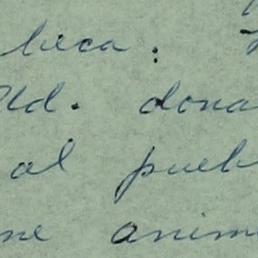 beca:
Ud. dona
al pueb
ne anim